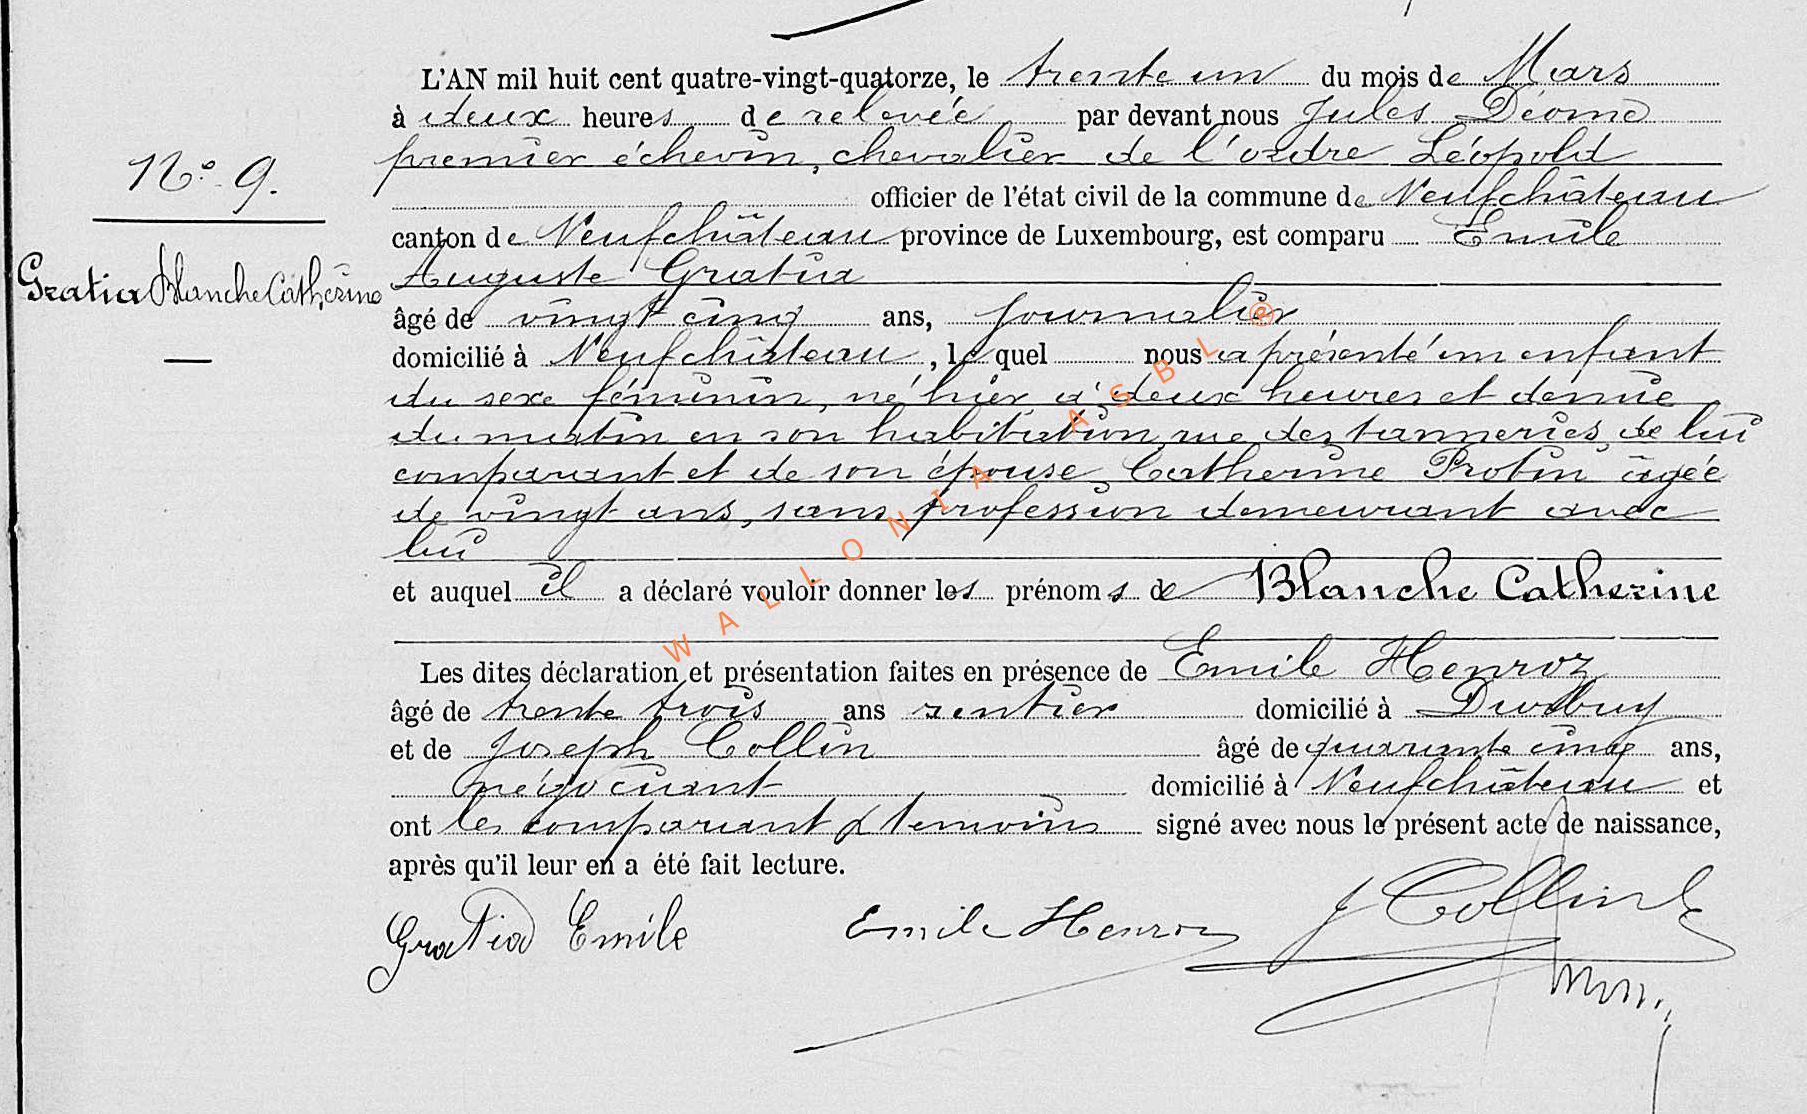 L'AN mil huit cent quatre-vingt-quatorze, le trente un du mois de Mars
à deux heures de relevée par devant nous Jules Déome
premier échevin, chevalier de l'ordre Léopold
N° 9.
officier de l'état civil de la commune de Neufchâteau
canton de Neufchâteau province de Luxembourg, est comparu Emile
Gratia Blanche Catherine
Auguste Gratia
âgé de vingt cinq ans, journalier
domicilié à Neufchâteau, le quel nous a présenté un enfant
du sexe féminin, né hier à deux heures et demie
du matin en son habitation rue des tanneries, de lui
comparant et de son épouse Catherine Protin âgée
de vingt ans, sans profession demeurant avec
lui
et auquel il a déclaré vouloir donner les prénoms de Blanche Catherine
Les dites déclaration et présentation faites en présence de Emile Henroz
âgé de trente trois ans rentier domicilié à Durbuy
et de Joseph Collin âgé de quarante cinq ans,
négociant domicilié à Neufchâteau et
ont les comparant & temoins signé avec nous le présent acte de naissance,
après qu'il leur en a été fait lecture.
Gratia Emile Emile Henroz J Collin
WALLONIA ASBL ®